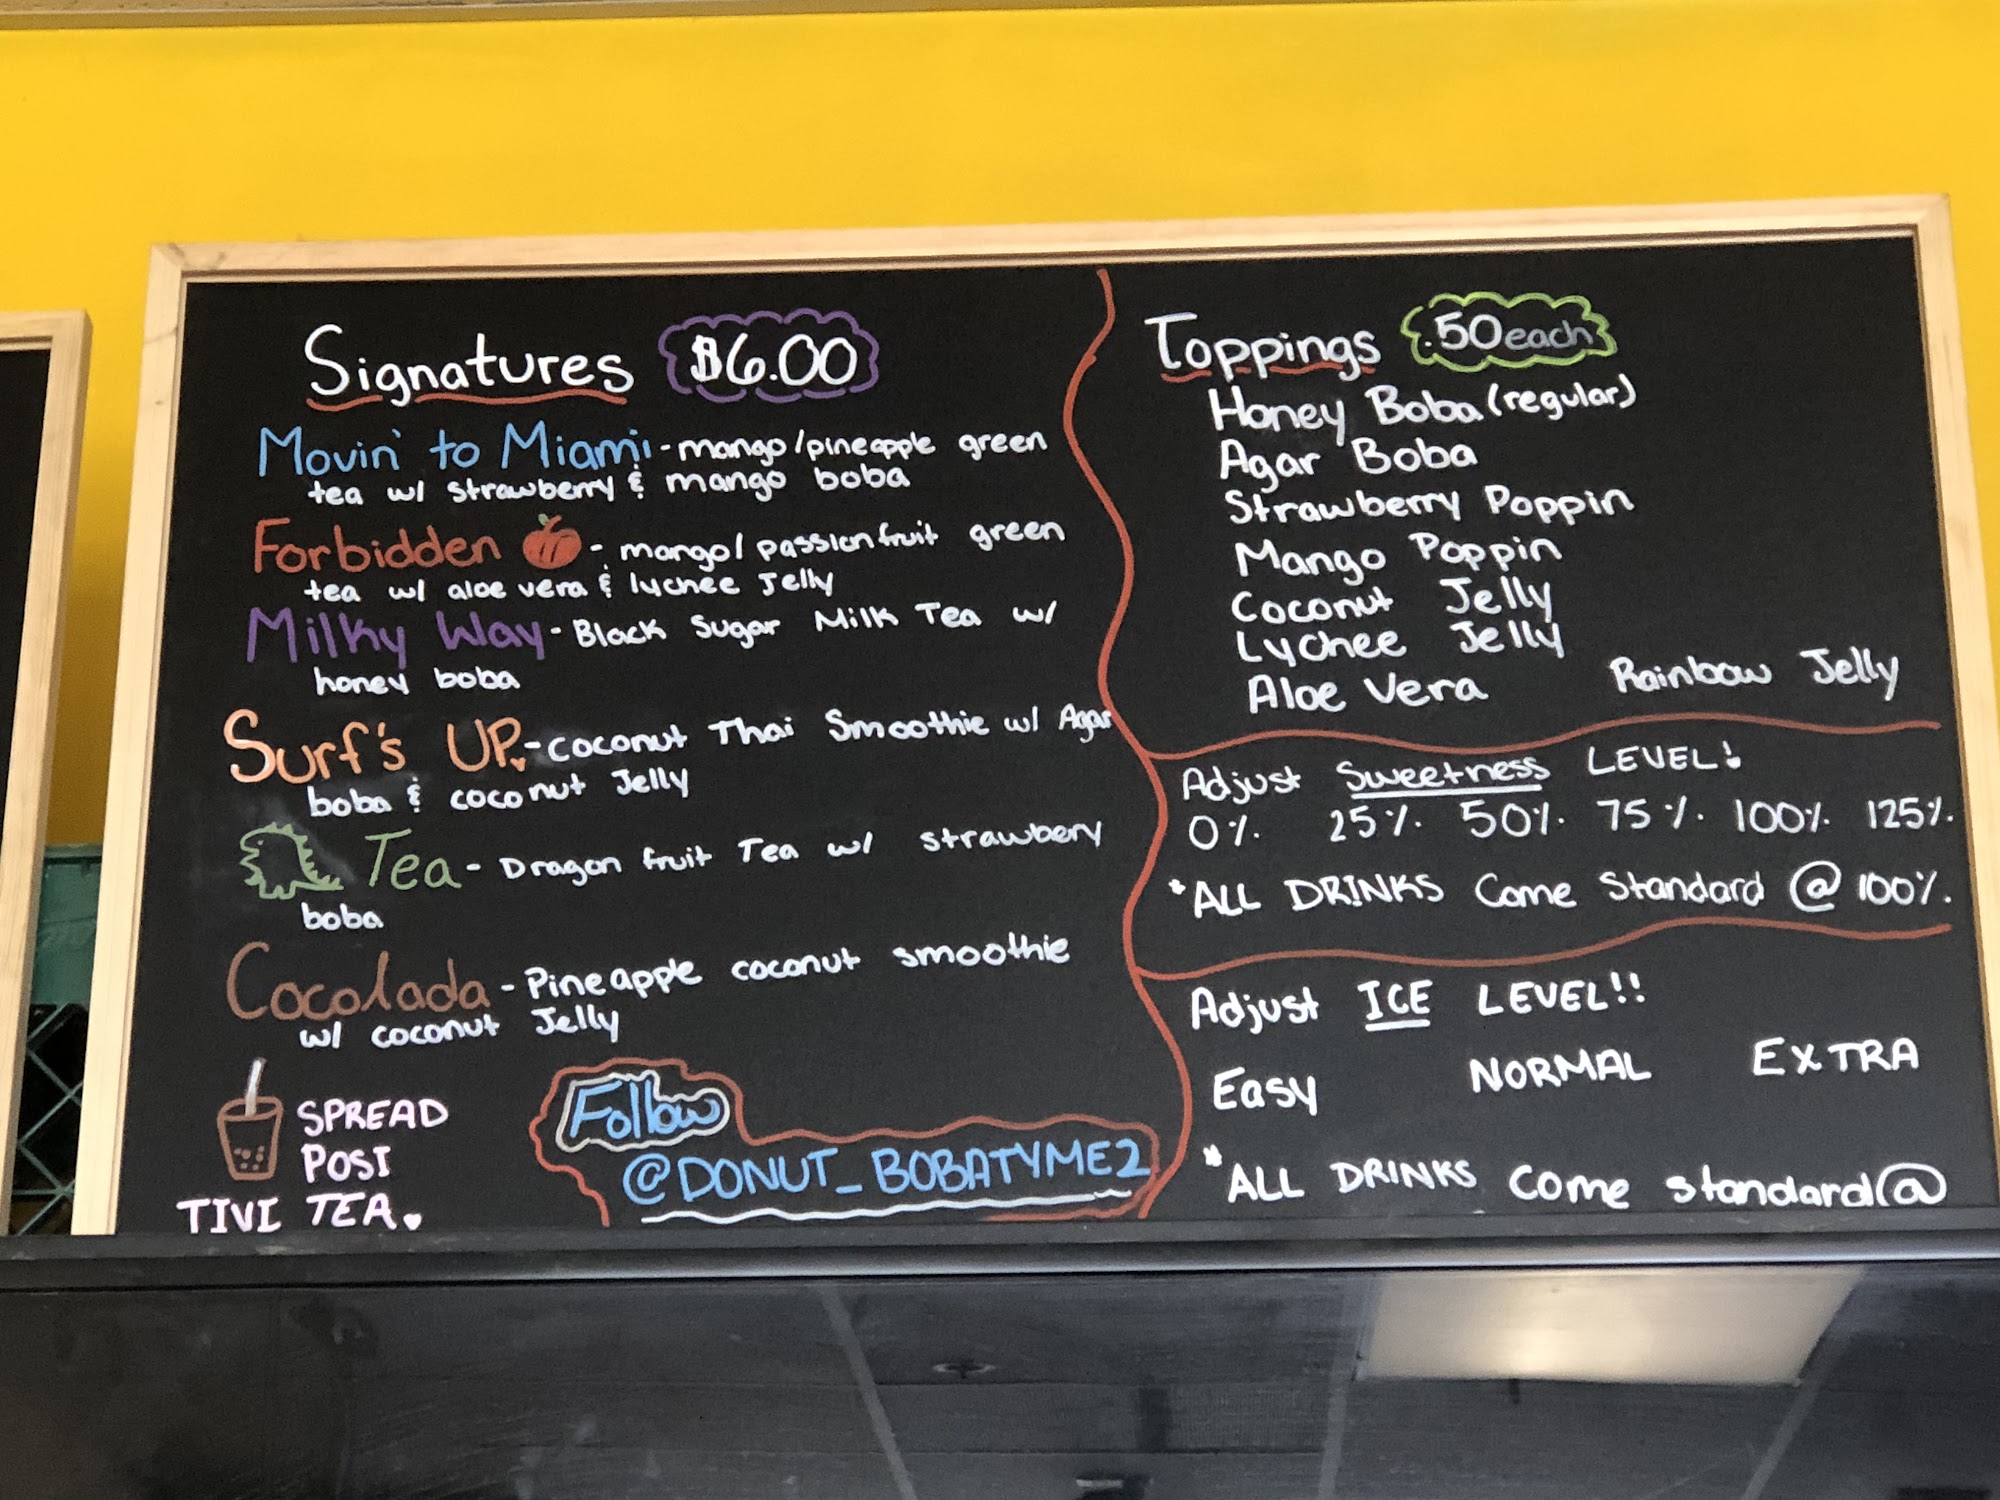 Signatures $6.00
Movin' to Miami - mango/pineapple green
tea w/ strawberry & mango boba
Forbidden - mango/passionfruit green
tea w/ aloe vera & lychee Jelly
Milky Way - Black Sugar Milk Tea w/
honey boba
Surf's UP - coconut Thai Smoothie w/ Agar
boba & coconut Jelly
Tea - Dragon fruit Tea w/ strawbery
boba
Cocolada - Pineapple coconut smoothie
w/ coconut Jelly
SPREAD
POSI
TIVI TEA
Follow
@DONUT_BOBATYME2
Toppings .50 each
Honey Boba (regular)
Agar Boba
Strawberry Poppin
Mango Poppin
Coconut Jelly
Lychee Jelly
Aloe Vera Rainbow Jelly
Adjust Sweetness LEVEL!
0% 25% 50% 75% 100% 125%
*ALL DRINKS Come Standard @ 100%
Adjust ICE LEVEL!!
Easy NORMAL EXTRA
*ALL DRINKS Come standard @